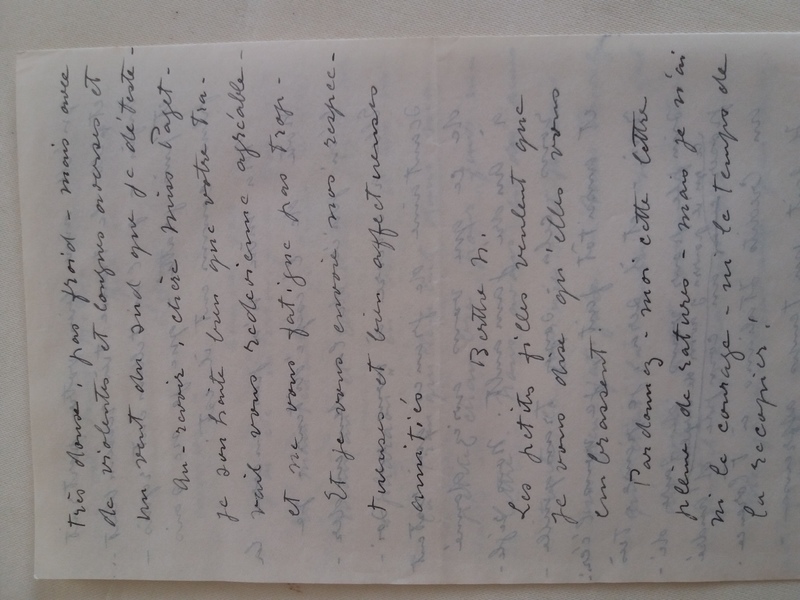 très douce, pas froid - mais avec
de violentes et longues averses et
un vent du sud que je déteste -
Au-revoir, chère Miss Paget -
je souhaite bien que votre tra-
vail vous redevienne agréable -
et ne vous fatigue pas trop -
Et je vous envoie mes respec-
tueuses et bien affectueuses
amitiés
Berthe N.
Les petites filles veulent que
je vous dise qu'elles vous
embrassent!
Pardonnez-moi cette lettre
pleine de ratures - mais je n'ai
ni le courage - ni le temps de
la recopier.